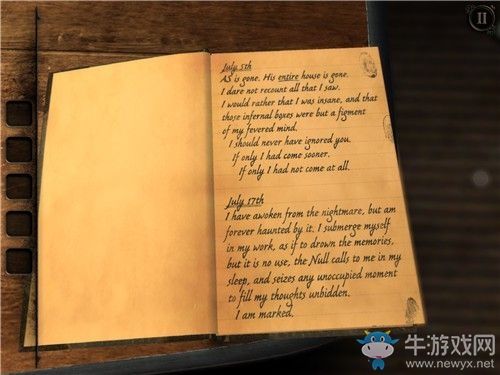 July 5th
AS is gone. His entire house is gone.
I dare not recount all that I saw.
I would rather that I was insane, and that
those infernal boxes were but a figment
of my fevered mind.
I should never have ignored you.
If only I had come sooner.
If only I had not come at all.
July 17th
I have awoken from the nightmare, but am
forever haunted by it. I submerge myself
in my work, as if to drown the memories,
but it is no use, the Null calls to me in my
sleep, and seizes any unoccupied moment
to fill my thoughts unbidden.
I am marked.
牛游戏网
www.newyx.net